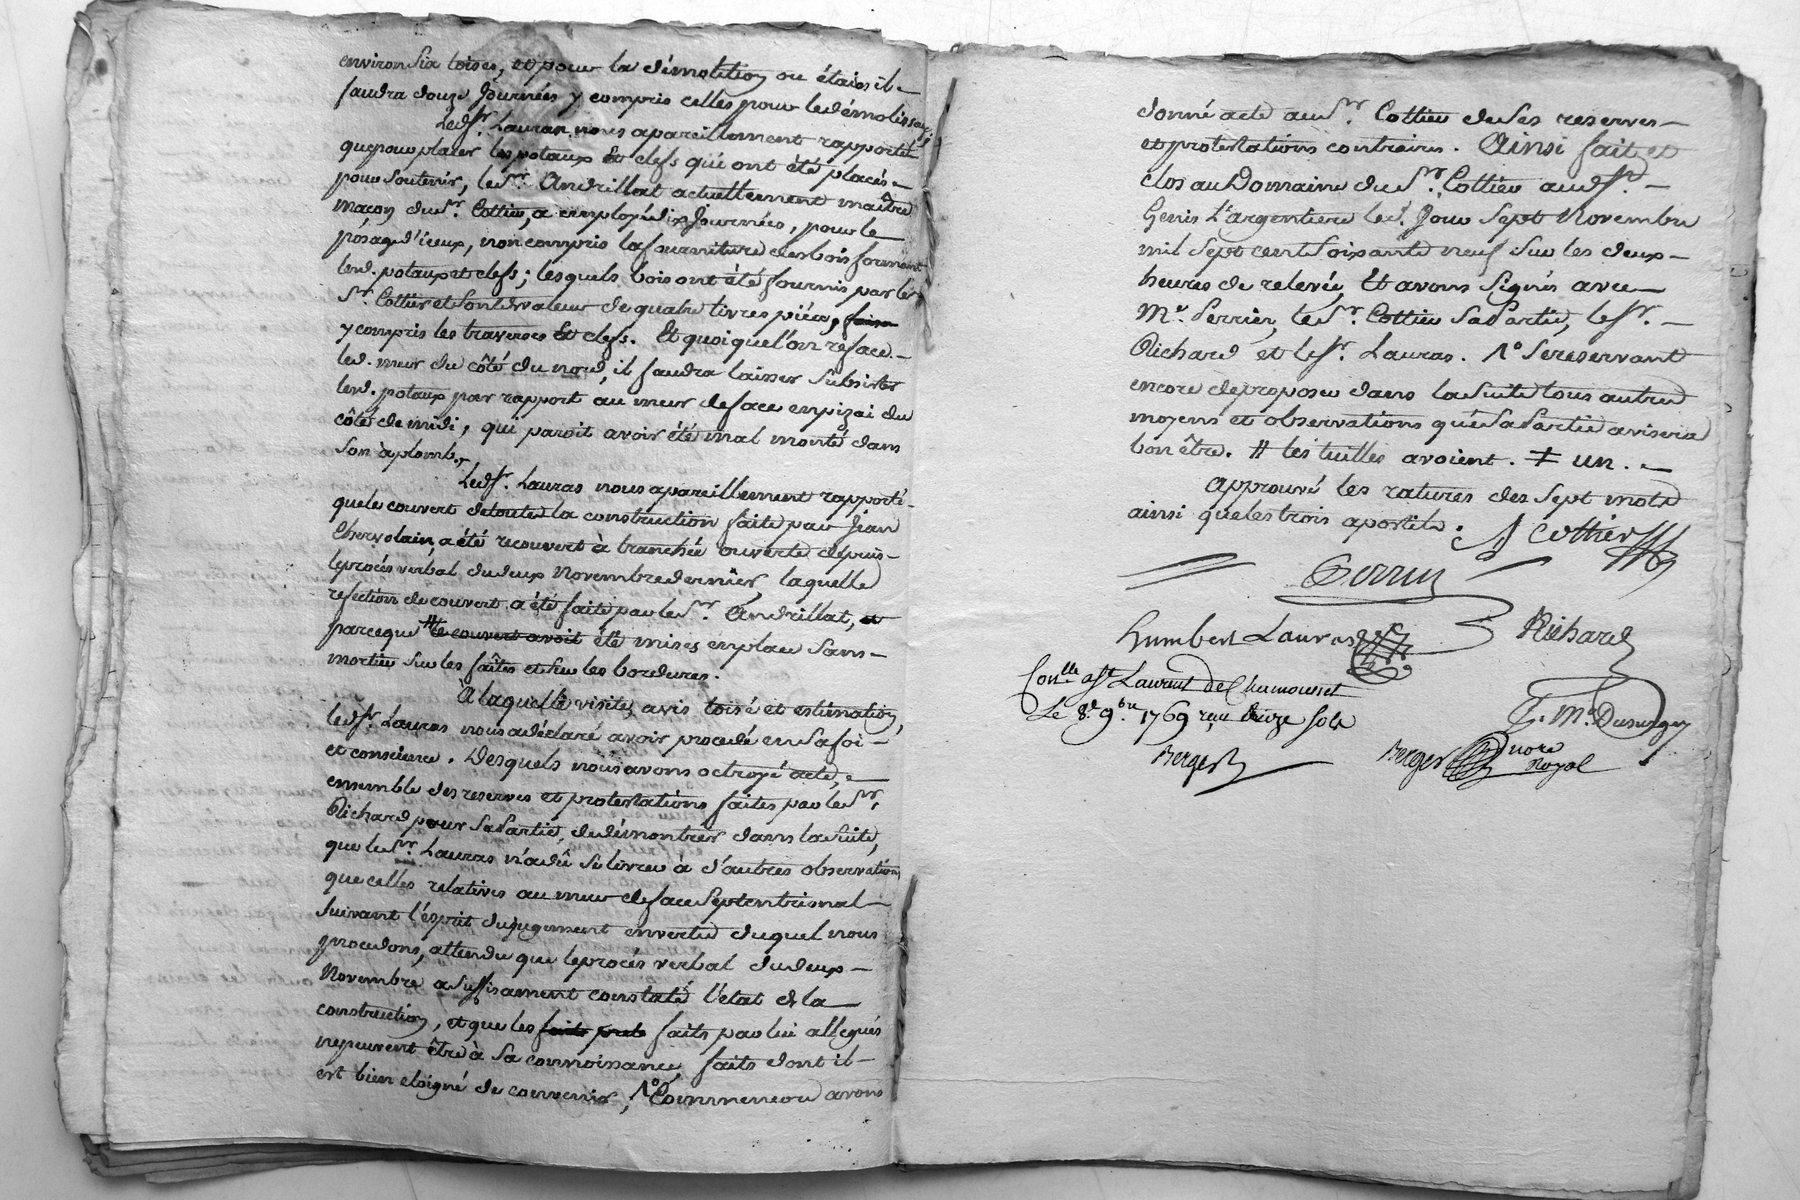 environ six toises, et pour la démolition ou étaies il
faudra douze Journées y compris celles pour le démolissage
Led. Sr. Lauras nous apareillement rapporté
que pour placer les potaux Et clefs qui ont été placés
pour soutenir, le Sr. Andrillat actuellement maître
maçon du Sr. Cottier, a employé dix Journées, pour le
posage d'iceux, non compris la fourniture des bois formant
lesd. potaux et clefs; lesquels bois ont été fournis par le
Sr. Cottier et sont de valeur de quatre livres pièce,
y compris les traverses Et clefs. Et quoique l'on reface
led. mur du côté du nord, il faudra laisser subsister
lesd. potaux par rapport au mur de face en pizai du
côté de midi, qui paroit avoir été mal monté dans
son à plomb.
Led. Sr. Lauras nous apareillement rapporté
que le couvert de toute la construction faite par Jean
Chervolain, a été recouvert à tranchée ouverte depuis
le procès verbal du deux Novembre dernier, laquelle
refection de couvert a été faite par le Sr. Andrillat, et
parceque # le couvert avoit été mises en place sans
mortier sur les faîtes et sur les bordures.
À laquelle visite, avis toisé et estimation,
led. Sr. Lauras nous a déclaré avoir procédé en sa foi
et conscience. Desquels nous avons octroyé acte,
ensemble des reserves et protestations faites par le Sr.
Richard pour sa Partie, de démontrer dans la suite,
que le Sr. Lauras n'a dû se livrer à d'autres observations
que celles relatives au mur de face Septentrional
suivant l'esprit du jugement en vertu duquel nous
procedons, attendu que le procés verbal du deux
Novembre a suffisament constaté l'état de la
construction, et que les faits par lui allegués
ne peuvent être à sa connoissance, faits dont il
est bien eloigné de convenir, 1° Comme nous avons
donné acte au Sr. Cottier de ses reserves
et protestations contraires. Ainsi fait et
clos au Domaine du Sr. Cottier aud. St.
Genis L'argentiere led. Jour Sept Novembre
mil Sept cent Soixante neuf sur les deux
heures de relevée, Et avons signés avec
Me. Perrin, le Sr. Cottier sa Partie, le Sr.
Richard et le Sr. Lauras. 1° se reservant
encore de proposer dans la suite tous autres
moyens et observations que sa Partie avisera
bon être. # les tuilles avoient. ≠ un.
approuvé les ratures des sept mots
ainsi que les trois apostiles. Cottier
Perrin
humbert Lauras Richard
Conlle. a St. Laurent de Chamousset
Le 8e. 9bre 1769 reçu treize sols
Berger
Berger nore Royal